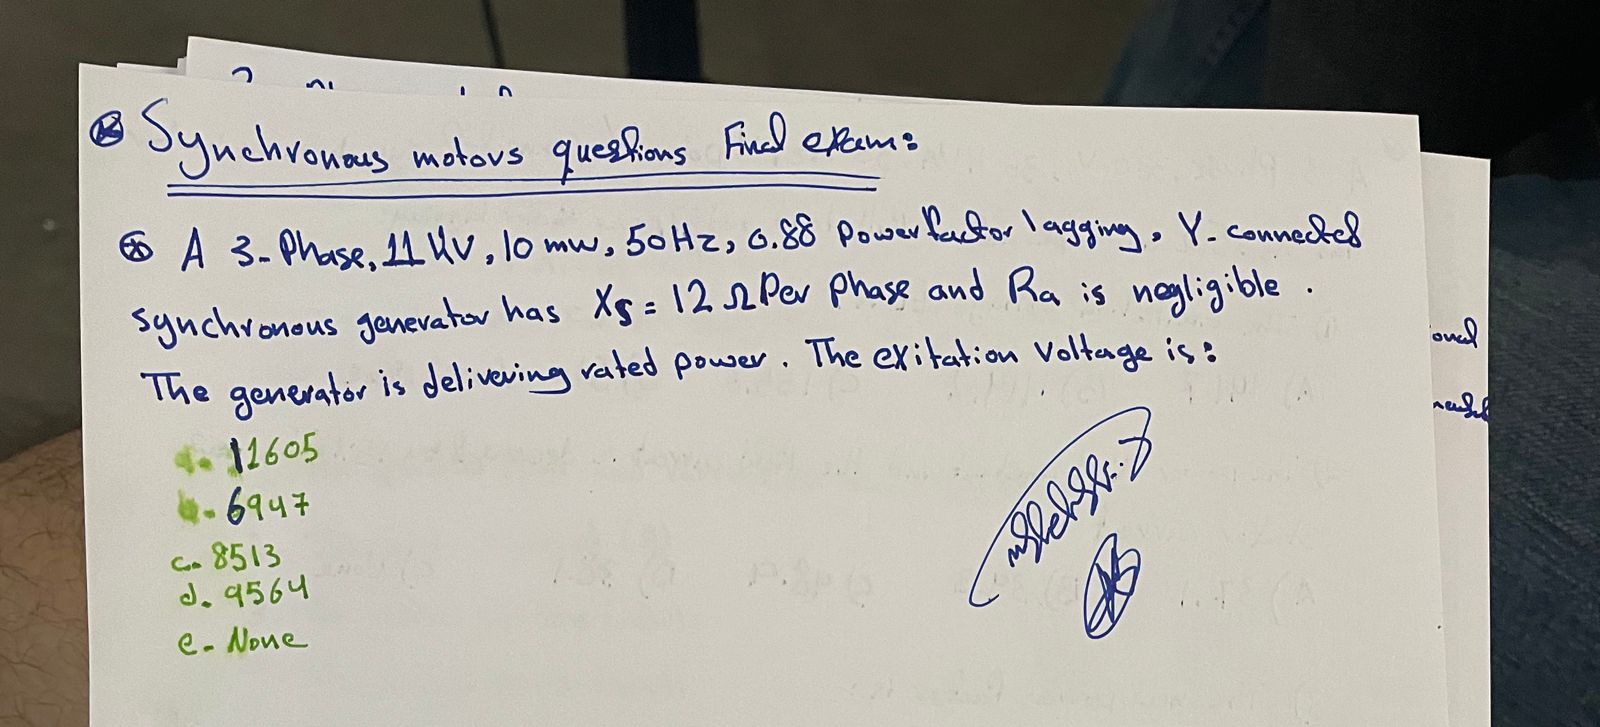 Synchronous motors questions Final exam:
A 3-Phase, 11 KV, 10 mw, 50Hz, 0.88 Power factor lagging, Y-connected
synchronous generator has Xs = 12 Ω Per Phase and Ra is negligible.
The generator is delivering rated power. The exitation Voltage is:
a. 11605
b. 6947
c. 8513
d. 9564
e- None
onal